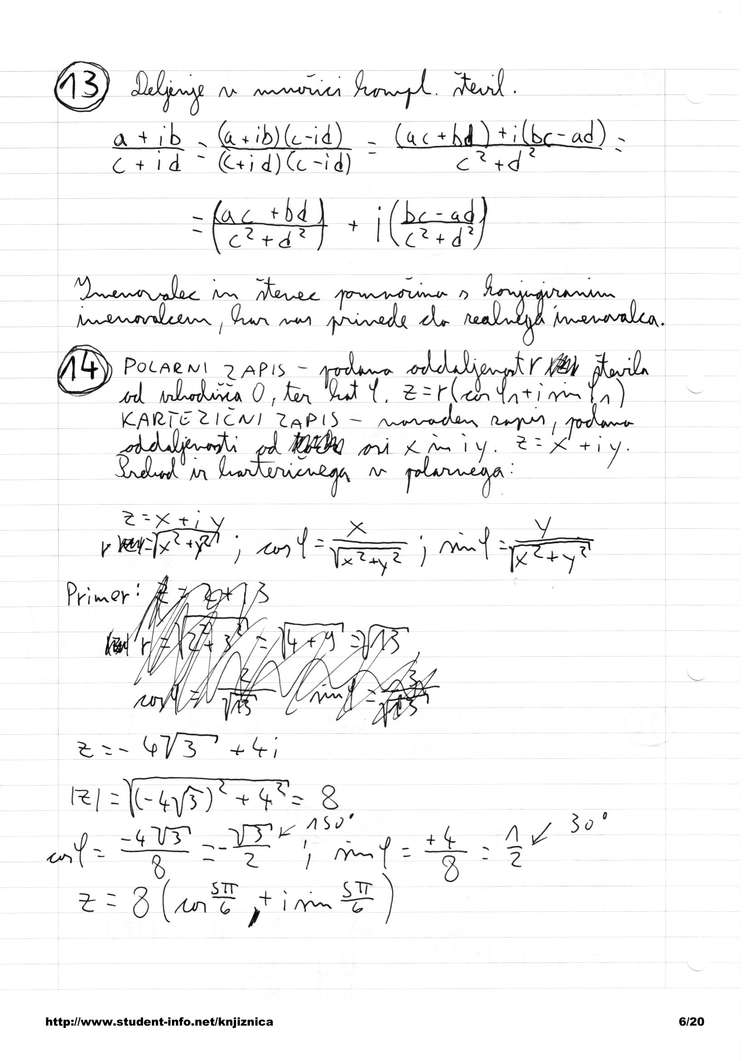 13 Deljenje v množici kompl. števil.
a + ib / c + id = (a+ib)(c-id) / (c+id)(c-id) = (ac+bd)+i(bc-ad) / c²+d² =
= (ac+bd / c²+d²) + i(bc-ad / c²+d²)
Imenovalec in števec pomnožimo s konjugiranim
imenovalcem, kar nas privede do realnega imenovalca.
14 POLARNI ZAPIS - podana oddaljenost r števila
od izhodišča 0, ter kot φ. z=r(cos φ₁+i sin φ₁)
KARTEZIČNI ZAPIS - navaden zapis, podana
oddaljenosti od osi x in iy. z=x+iy.
Prehod iz kartezičnega v polarnega:
z=x+iy
r=√x²+y² ; cos φ = x / √x²+y² ; sin φ = y / √x²+y²
Primer: z = 2+i3
r = √2²+3² = √4+9 = √13
cos φ = 2 / √13 sin φ = 3 / √13
z=-4√3 + 4i
|z| = √(-4√3)² + 4² = 8
cos φ = -4√3 / 8 = -√3 / 2 ↙ 150° ; sin φ = +4 / 8 = 1 / 2 ↙ 30°
z = 8 (cos 5π/6 + i sin 5π/6)
http://www.student-info.net/knjiznica 6/20